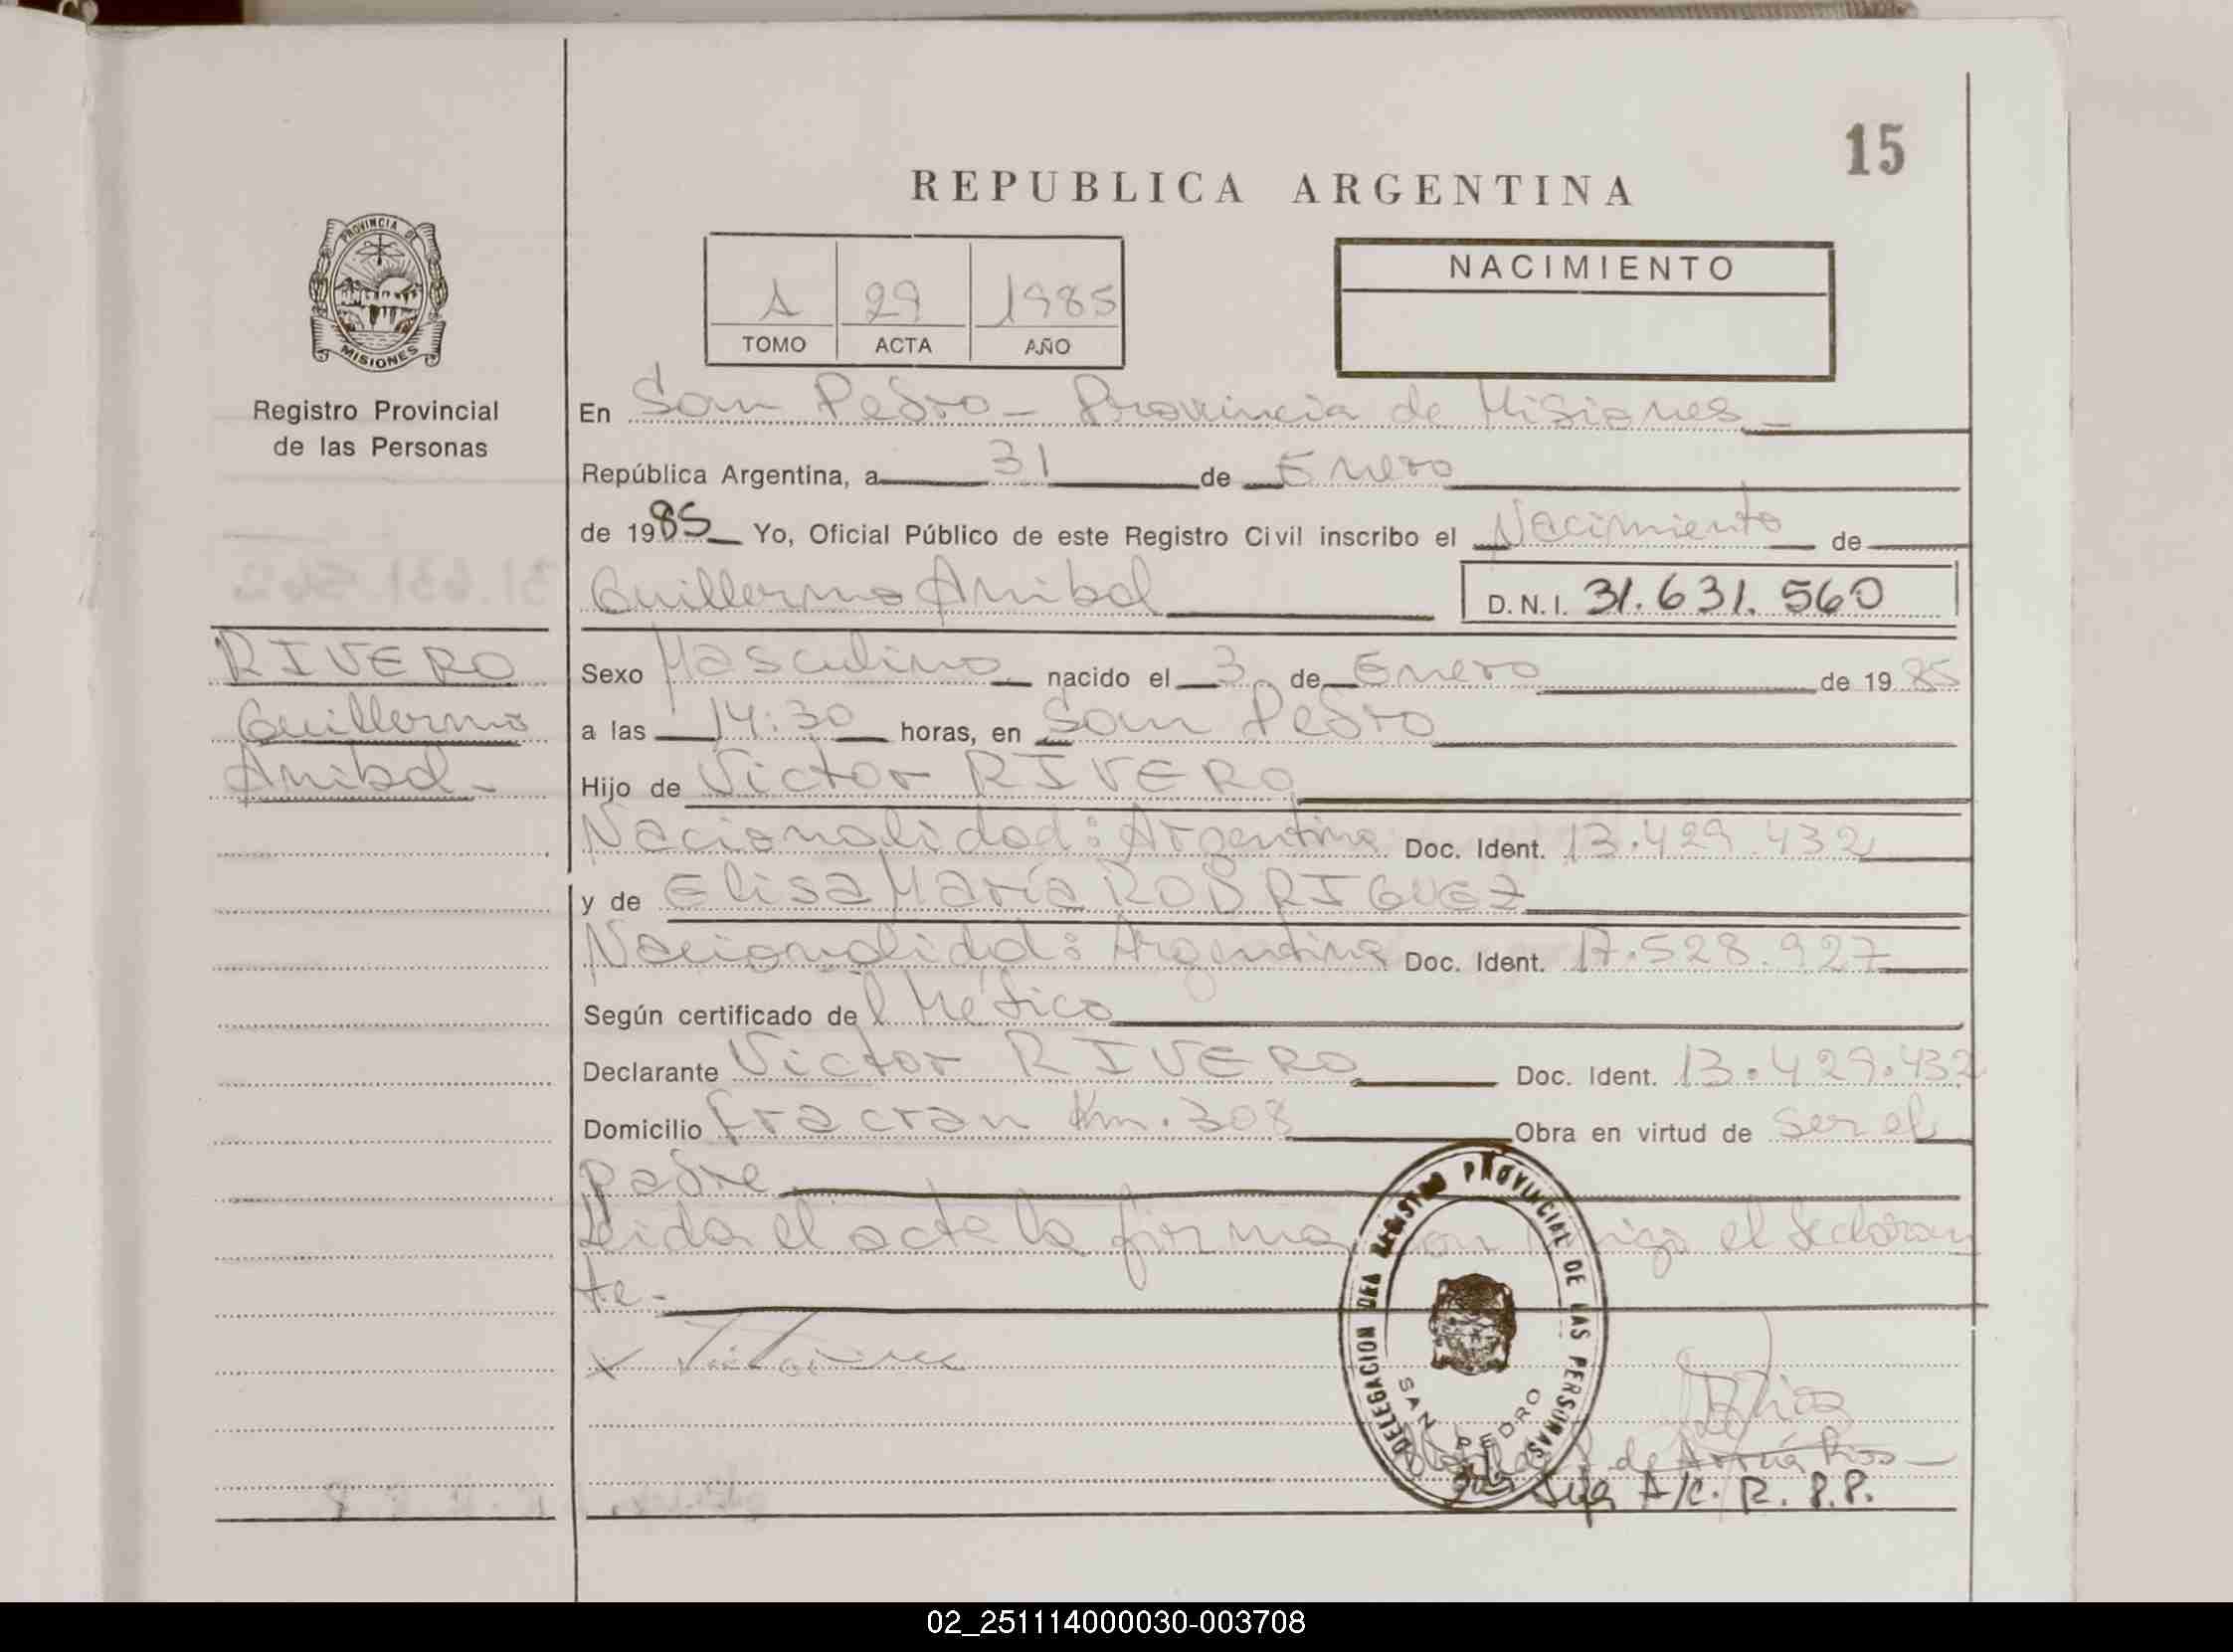 15
REPUBLICA ARGENTINA
PROVINCIA DE
MISIONES
Registro Provincial
de las Personas
1 29 1985
TOMO ACTA AÑO
NACIMIENTO
En San Pedro - Provincia de Misiones -
República Argentina, a 31 de Enero
de 1985 Yo, Oficial Público de este Registro Civil inscribo el Nacimiento de
Guillermo Anibal D.N.I. 31.631.560
RIVERO
Guillermo
Anibal -
Sexo Masculino nacido el 3 de Enero de 1985
a las 14:30 horas, en San Pedro
Hijo de Victor RIVERO
Nacionalidad: Argentina Doc. Ident. 13.429.432
y de Elisa María RODRIGUEZ
Nacionalidad: Argentina Doc. Ident. 17.528.927
Según certificado del Médico
Declarante Victor RIVERO Doc. Ident. 13.429.432
Domicilio Fracran Km. 308 Obra en virtud de ser el
padre
Leida el acta la firma conmigo el declaran
te -
x
DELEGACION DEL REGISTRO PROVINCIAL DE LAS PERSONAS
SAN PEDRO
de Arrúa Rios
A/C. R. P.P.
02_251114000030-003708